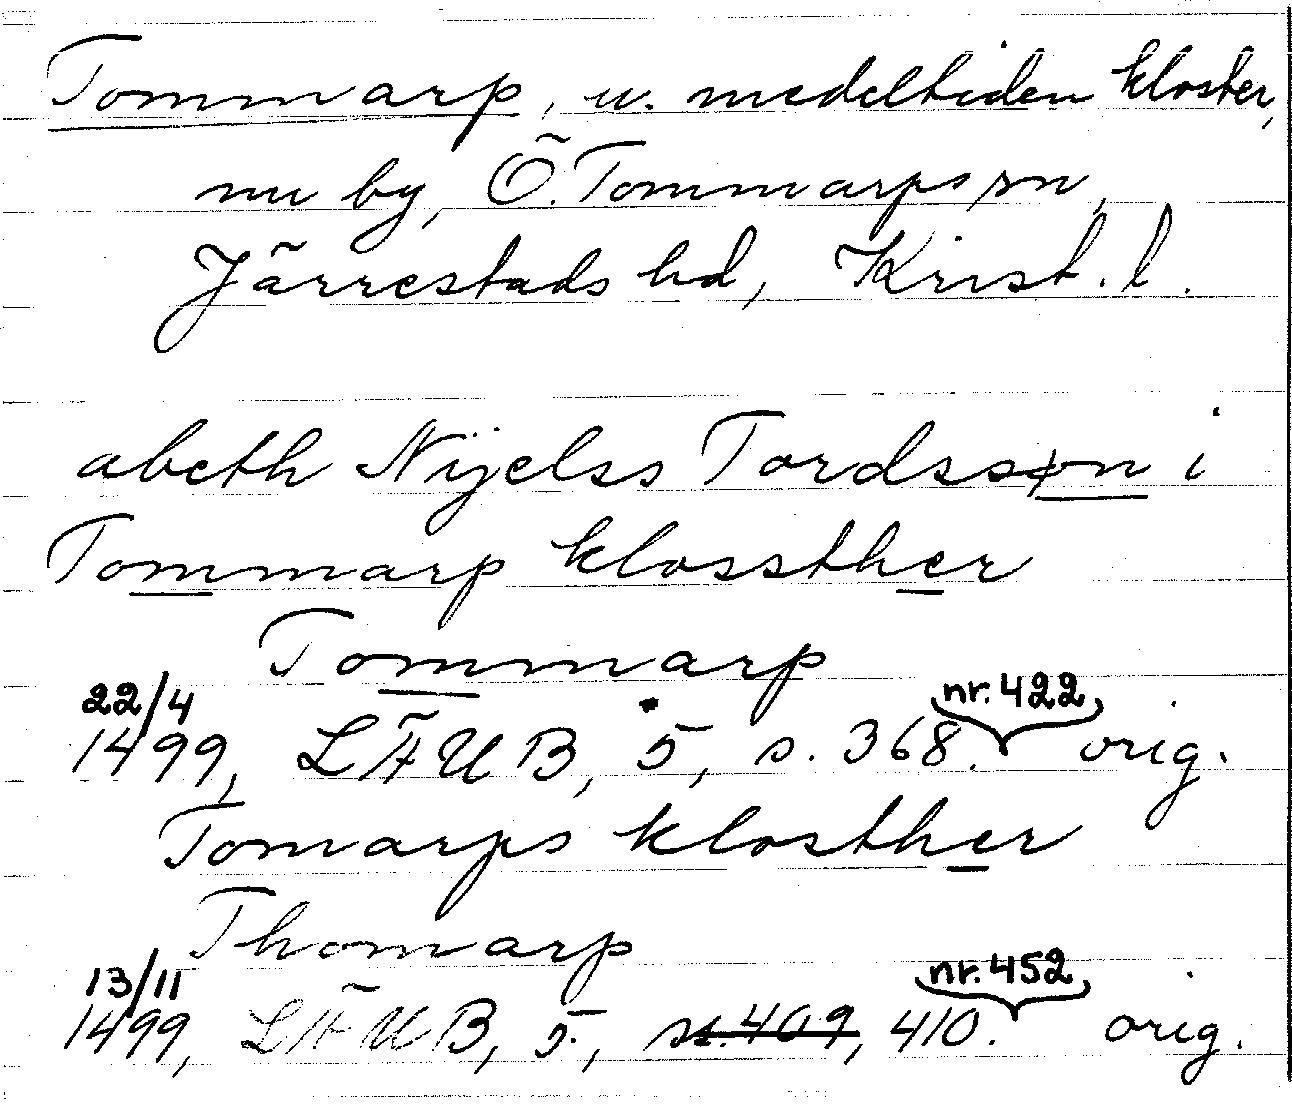 Tommarp, u. medeltiden kloster,
nu by, Ö. Tommarps sn,
Järrestads hd, Krist. l.
abeth Nijelss Tordsson i
Tommarp klossther
Tommarp
22/4 nr. 422
1499, LÄUB, 5, s. 368. orig.
Tomarps klosther
Thomarp
13/11 nr. 452
1499, LÄUB, 5, ss. 409, 410. orig.